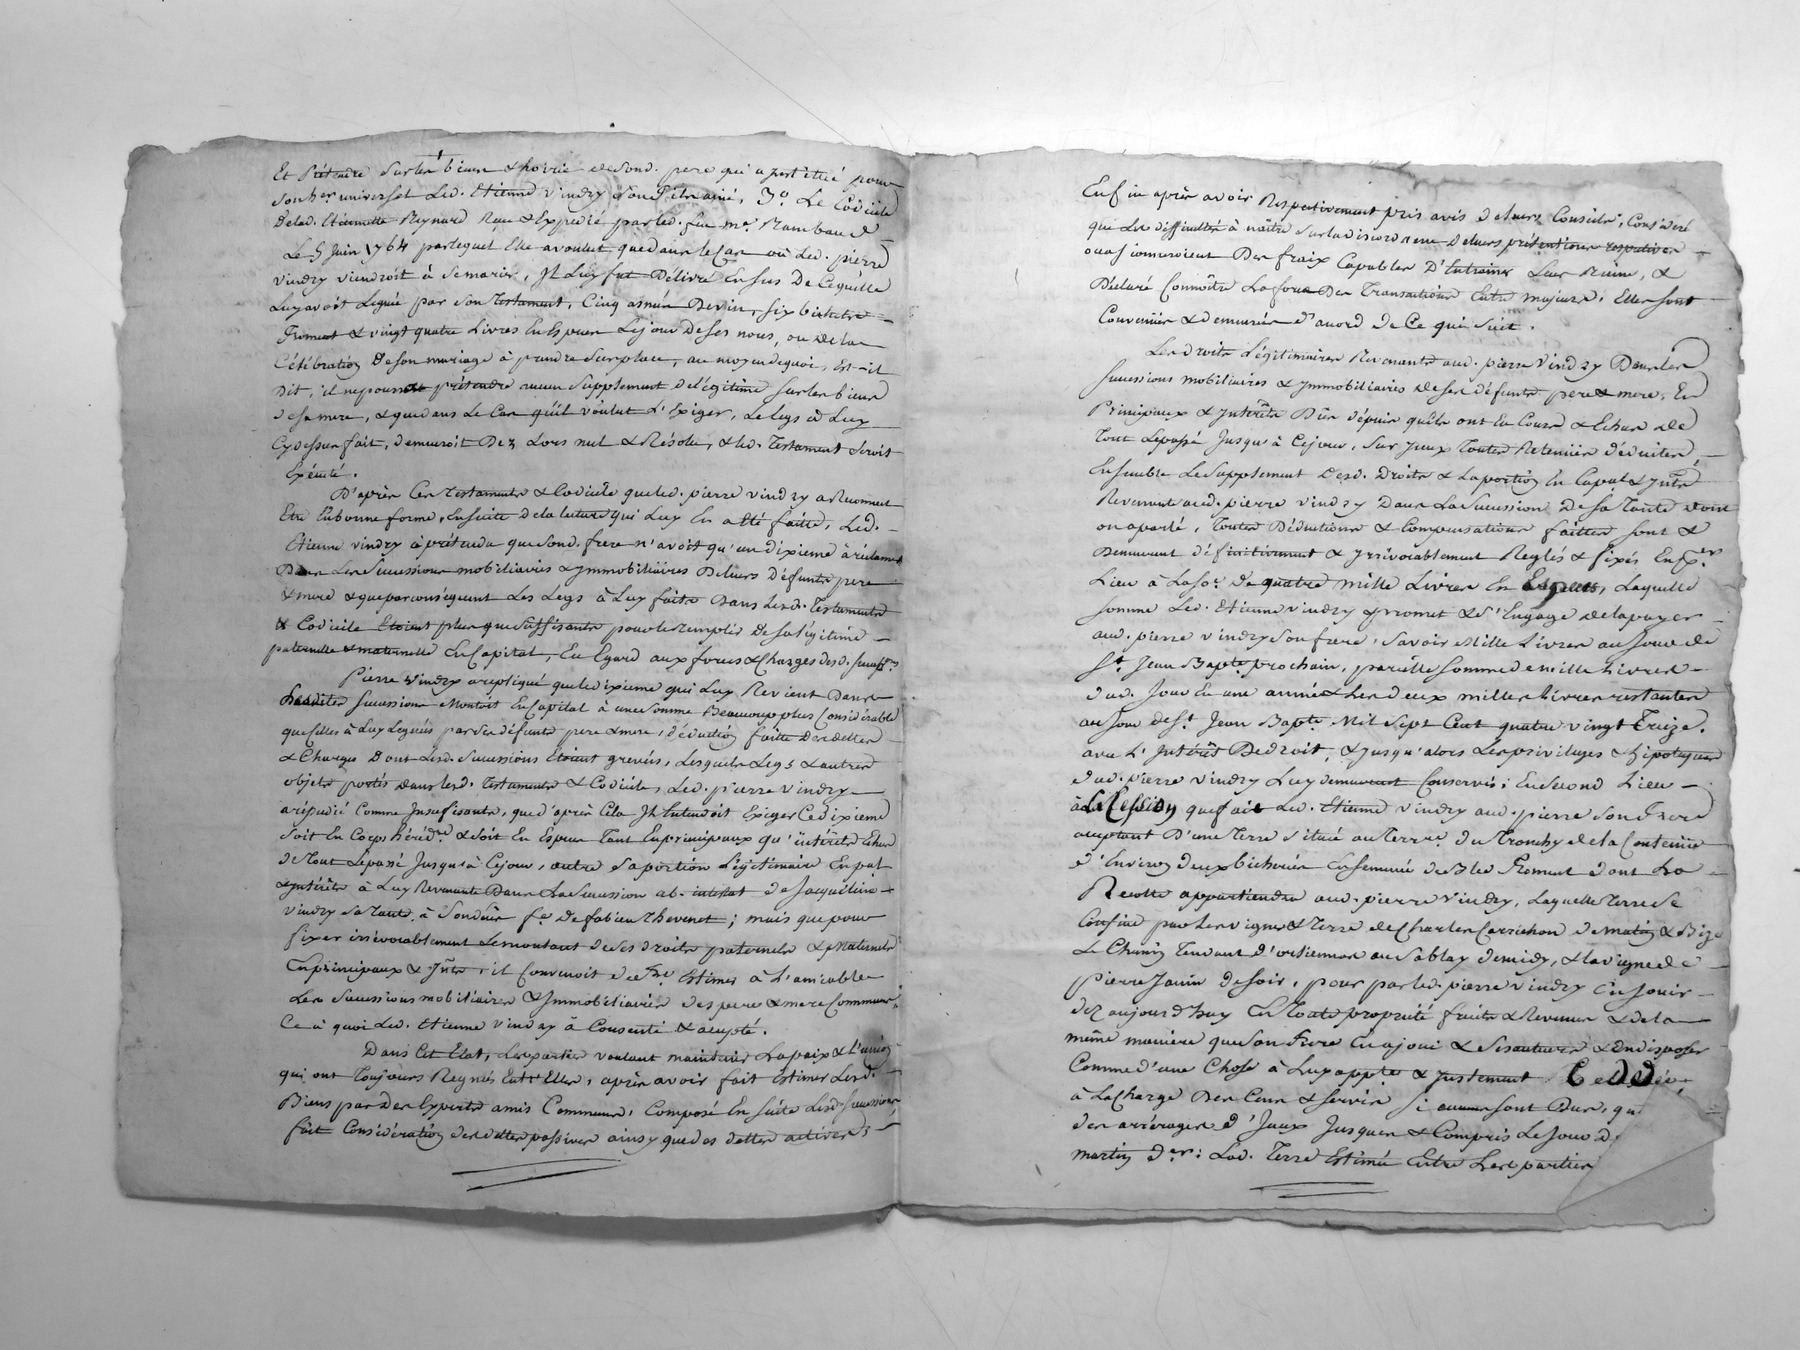 Et Prétendre sur les biens & hoirie de sond. pere qui a institué pour
son her. universel Led. Etienne Vindry son fils ainé, 3.o Le Codicile
delad. Etiennette Reynard Reçu & Expedié par led. feu me. Rambaud
Le 5 Juin 1764 par lequel Elle a voulut que dans le Cas où Led. pierre
vindry viendroit à se marier, Jl Luy fut Délivré En sus De Cequ'Elle
Luy avoit Légué par son Testament, Cinq asnées De vin, six bichets
Froment & vingt quatre Livres En Especes Le jour de ses noces, ou de la
Célébration de son mariage à prendre sur place, au moyen de quoi, Est-il
Dit, il ne pourroit prétendre aucun Supplement de légitime sur les biens
de sa mere, & que dans Le Cas qu'il voulut L'Exiger, Le legs à Luy
Cy dessus fait, demeuroit Dez Lors nul & Résolu, & led. Testament Seroit
Exécuté.
D'après Ces Testaments & Codicile que led. pierre vindry a Reconnus
Etre En bonne forme, En suite de la lecture qui Luy En a Eté faitte, Led.
Etienne vindry a prétendu que sond. frere n'avoit qu'un dixieme à réclamer
Dans Les Successions mobiliaires & ymmobiliaires De leurs Défunts pere
& mere & que par conséquent Les Legs à Luy faits Dans Lesd. Testaments
& Codicile Etoient plus que suffisants pour le remplir de sa légitime
paternelle & maternelle En Capital, Eu Egard aux forces & Charges desd. successns
Pierre Vindry a repliqué que le dixieme qui Luy Revient Dans
Lesdites successions Montoit En Capital à une somme Beaucoup plus Considérable
que Celles à Luy Leguées par ses défunts pere & mere, déduction faitte des dettes
& Charges Dont lesd. Successions Etoient grevées, Lesquels Legs & autres
objets portés dans lesd. Testaments & Codicile, Led. pierre vindry
a répudié Comme Insufisants, que d'après Cela Jl Entendoit Exiger Ce dixieme
Soit En Corps hérédre. & Soit En Especes Tant En principaux qu'intérêts Echus
de Tout Le passé Jusqu'à Ce jour, outre Sa portion Légitimaire En pal
& intérêts à Luy Revenante Dans La Succession ab-intestat de Jacqueline
vindry Sa Tante à son décès fe. de fabien Thevenet; mais que pour
fixer irrévocablement Le montant de ses droits paternels & Maternels
En principaux & Jnts. il Convenoit de fre Estimer à L'amiable
Les Successions mobiliaires & Immobiliaires des pere & mere Communs,
Ce à quoi Led. Etienne vindry à Consenti & accepté.
Dans Cet Etat, Les parties voulant maintenir La paix & L'union
qui ont Toujours Regnés Entr'Elles, après avoir fait Estimer Lesd.
Biens par Des Experts amis Communs, Composé En suite Lesd. Successions
fait Considération des dettes passives ainsy que des dettes actives;
Enfin après avoir Respectivement pris avis de leurs Conseils; Considéré
que Les difficultés à naître sur la discordance de leurs prétentions respectives
occasionneroient Des fraix Capables D'Entrainer Leur Ruine, &
Déclaré Connoître La force Des Transactions Entre majeurs: Elles sont
Convenües & demeurées d'accord de Ce qui suit.
Les droits Légitimaires Revenants aud. pierre Vindry Dans les
successions mobiliaires & ymmobiliaires de ses défunts pere & mere, En
Principaux & Intérêts Dûs depuis qu'ils ont Eu Cours & Echus de
Tout Le passé Jusqu'à Ce jour, sur yceux Toutes Retenües déduites,
Ensemble Le Supplement desd. Droits & La portion En Capal & Jnts
Revenante aud. pierre vindry Dans La Succession de sa Tante dont
on a parlé, Toutes Déductions & Compensations faittes sont &
Demeurent définitivement & yrrévocablement Reglés & fixés En Per.
Lieu à La Soe. de quatre mille Livres En Especes, Laquelle
somme Led. Etienne vindry promet & s'Engage de la payer
aud. pierre vindry son frere, savoir Mille Livres au jour de
St. Jean Bapte. prochain, pareille somme de mille Livres
dud. Jour En une année & Les deux milles Livres restantes
au jour de St. Jean Bapte. Mil Sept Cent quatre vingt Treize.
avec L'Intérêt De droit, & jusqu'alors Les privileges & hipoteques
dud. pierre vindry Luy demeurent Conservés; En second Lieu
à La Cession que fait Led. Etienne vindry aud. pierre Son Frere
acceptant D'une Terre située au Terre. du Tronchy de la Contenüe
d'Environ deux bicherées Ensemencée de Bled Froment dont La
Récolte appartiendra aud. pierre Vindry, Laquelle Terre Se
Confine par Les vignes & Terre de Charles Carrichon de matin & Bize
Le Chemin Tendant d' au Sablay de midy, & la vigne de
pierre Janin de soir, pour par led. pierre vindry En jouir
dez aujourd'huy En Toute propriété fruits & Revenus & de la
même maniere que Son Frere En a joui & Ses auteurs & En disposer
Comme d'une Chose à Luy appte. & justement Cedée,
à La Charge Des Cens & servis si aucuns sont Dus, qu
des arrérages d'Jceux Jusques & Compris Le jour d
martin der: Lad. Terre Estimée Entre Les parties